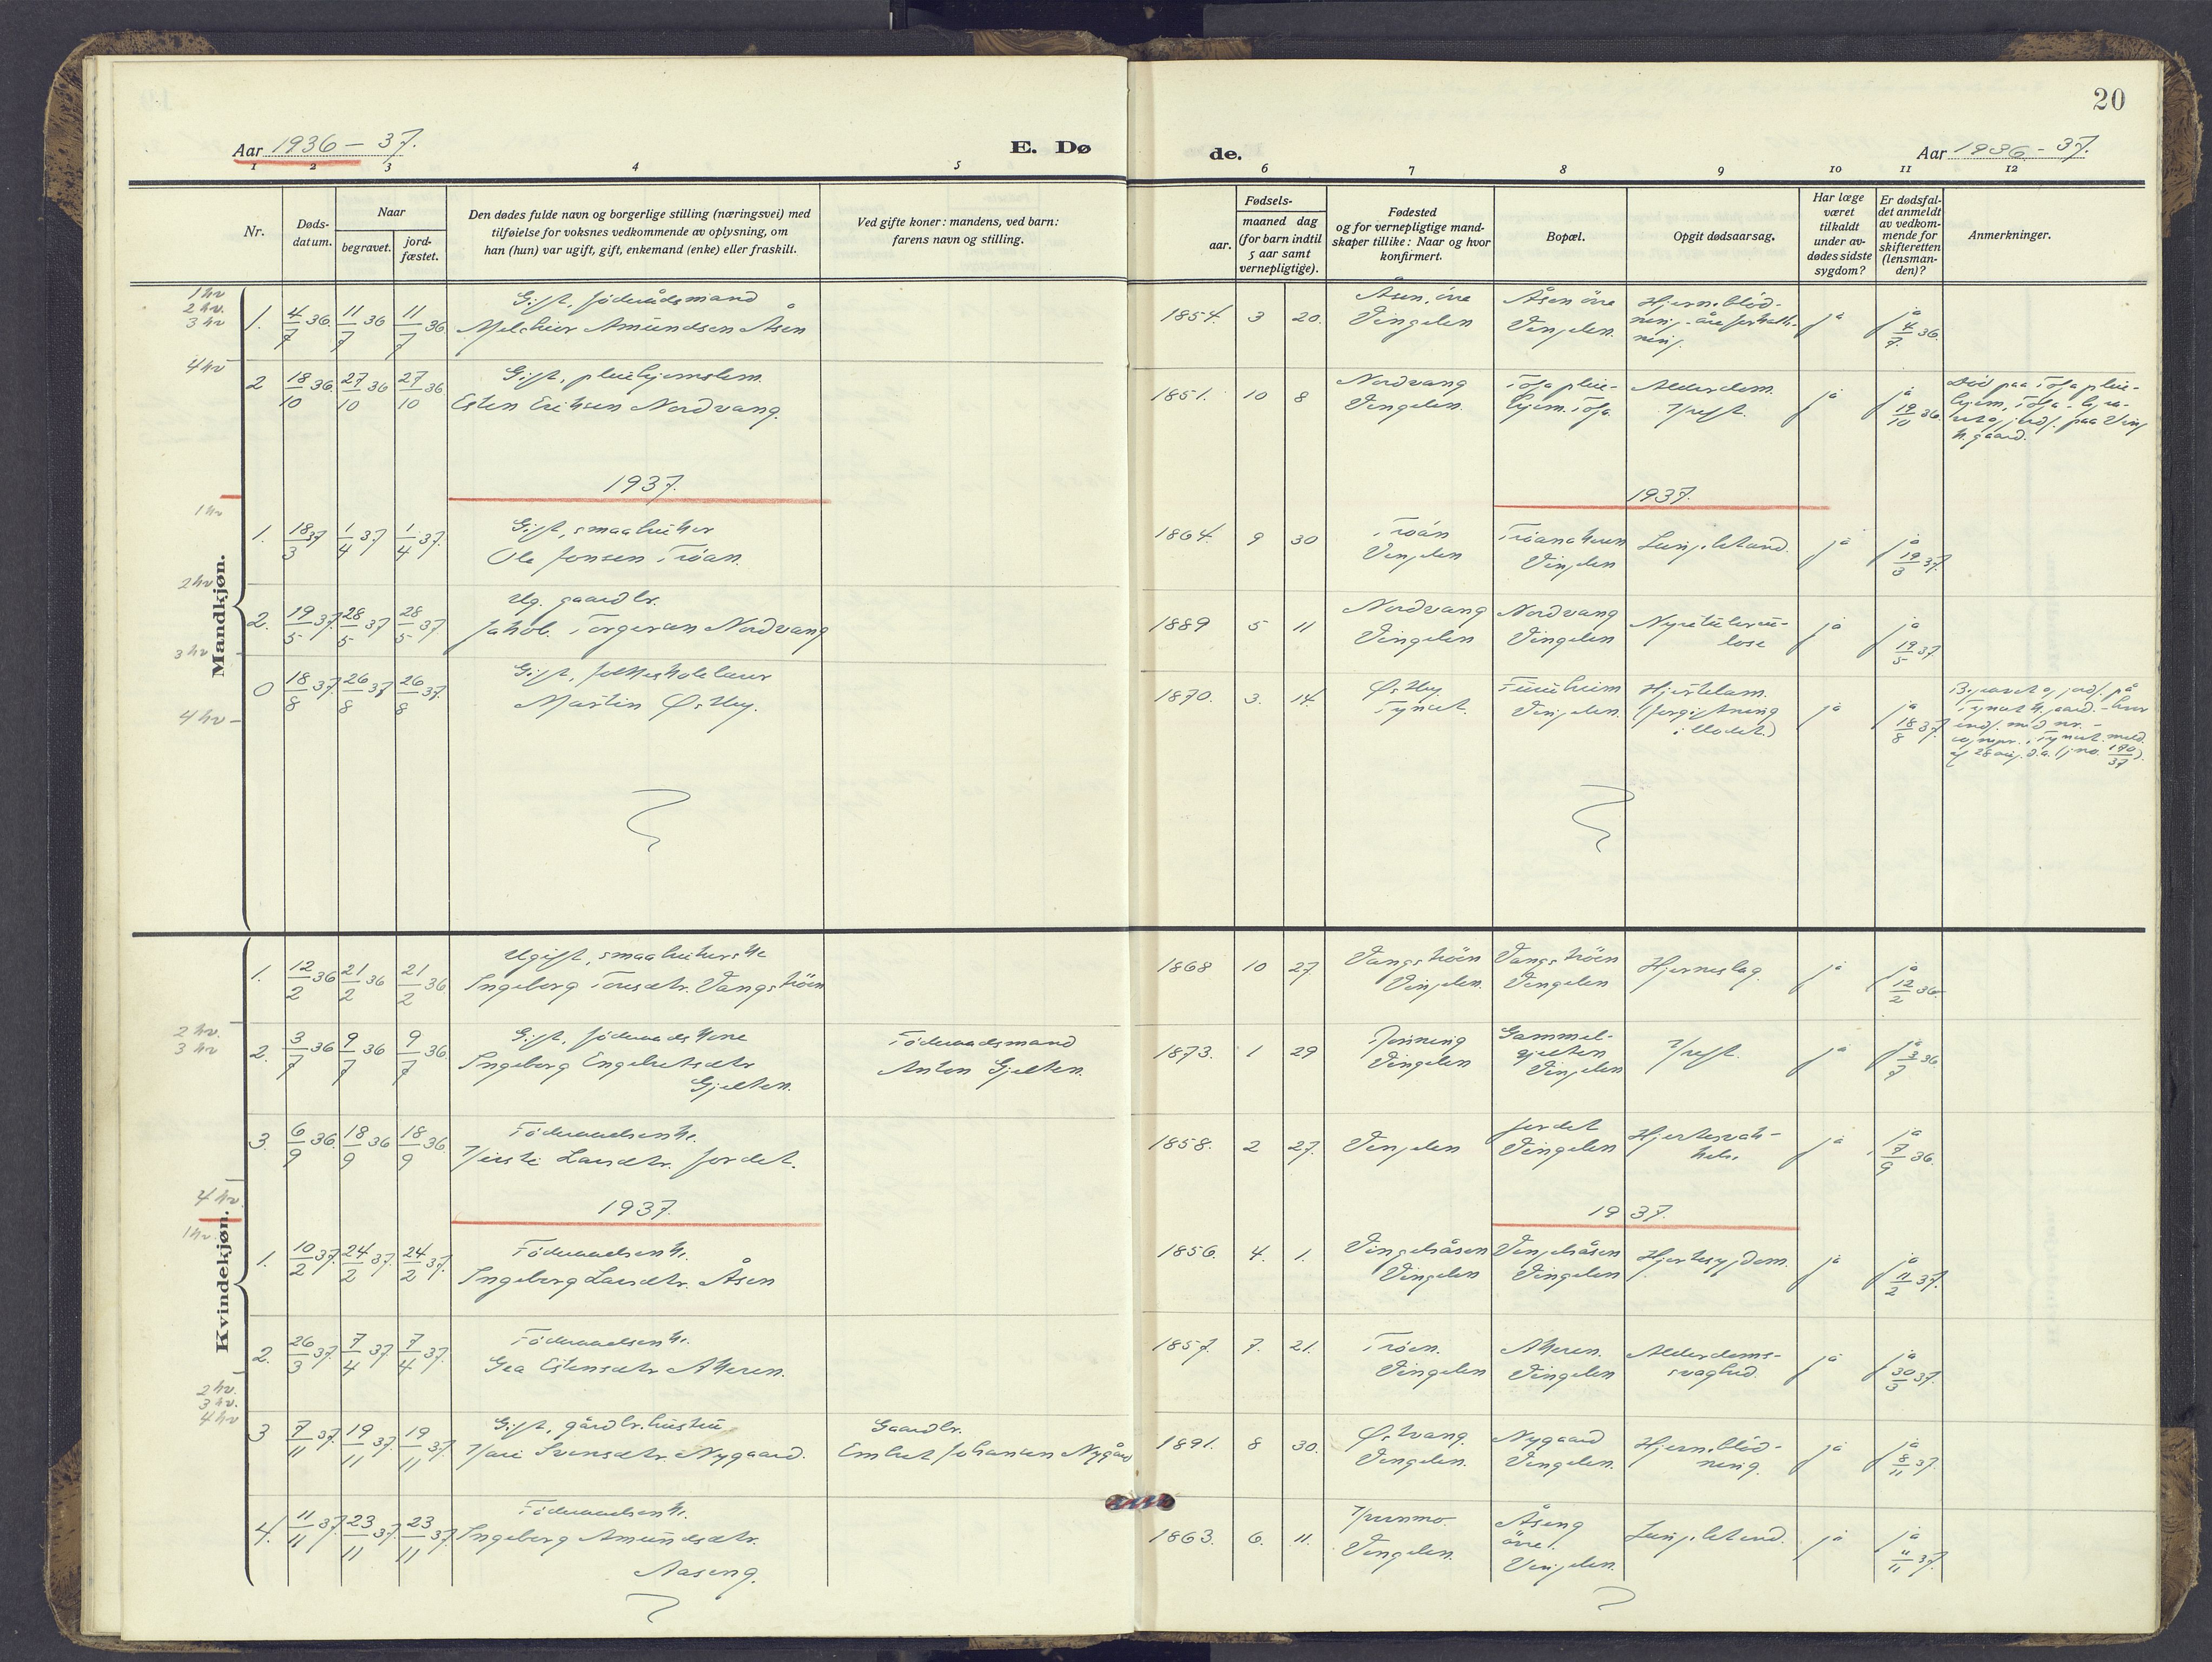 20
Aar 1936 – 37.
E. Dø
de.
Aar 1936 – 37.
1 2 3 4 5 6 7 8 9 10 11 12
Nr.
Døds-
datum.
Naar
begravet.
jord-
fæstet.
Den dødes fulde navn og borgerlige stilling (næringsvei) med
tilføielse for voksnes vedkommende av oplysning, om
han (hun) var ugift, gift, enkemand (enke) eller fraskilt.
Ved gifte koner: mandens, ved barn:
farens navn og stilling.
Fødsels-
aar.
maaned dag
(for barn indtil
5 aar samt
vernepligtige).
Fødested
og for vernepligtige mand-
skaper tillike: Naar og hvor
konfirmert.
Bopæl.
Opgit dødsaarsag.
Har læge
været
tilkaldt
under av-
dødes sidste
sygdom?
Er dødsfal-
det anmeldt
av vedkom-
mende for
skifteretten
(lensman-
den)?
Anmerkninger.
Mandkjøn.
1hv
2hv.
3hv
1. 4/7 36. 11/7 36 11/7 36
Gift, föderådsmand
Melchior Amundsen Åsen
1854. 3 20.
Åsen, övre
Vingelen
Åsen övre
Vingelen.
Hjerneblöd-
ning - åreforkalk-
ning.
ja
ja 4/7 36.
4hv
2 18/10 36. 27/10 36 27/10 36
Gift, pleiehjemslem.
Esten Eriksen Nordvang.
1851. 10 8
Nordvang
Vingelen.
Tolga pleie-
hjem. Tolga.
Alderdom.
Kreft.
ja
ja 19/10 36.
Död paa Tolga pleie-
hjem, Tolga.
paa Ving
k. gaard.
1937.
1937.
1hv
1. 18/3 37 1/4 37 1/4 37.
Gift, smaabruker
Ole Jonsen Tröan.
1864. 9 30
Tröan
Vingelen
Tröanakeren
Vingelen
Lungebetend.
ja
ja 19/3 37.
2hv
2. 19/5 37. 28/5 37 28/5 37
Ug. gaardbr.
Jakob Torgersen Nordvang
1889 5 11
Nordvang
Vingelen
Nordvang
Vingelen
Nyretuberku-
lose
ja
ja 19/5 37.
3hv
0 18/8 37. 26/8 37 26/8 37.
Gift, folkeskolelærer
Martin Østby.
1870. 3. 14.
Østby.
Tynset.
Furuheim
Vingelen.
Hjertelam.
(forgiftning
i blodet.)
ja
ja 18/8 37
Begravet og jordf. på
Tynset k.gaard. - hvor
indf. med nr. -
i Tynset. meld.
af 28 aug. d.a. (jno. 190/37).
4hv
Kvindekjøn.
1. 12/2 36 21/2 36 21/2 36.
Ugift, smaabrukerske
Ingeborg Toresdtr. Vangströen
1868 10 27
Vangströen
Vingelen.
Vangströen
Vingelen
Hjerneslag.
ja
ja 12/2 36.
2hv.
3hv
2. 3/7 36 9/7 36 9/7 36.
Gift, föderaadskone
Ingeborg Engebretsdtr
Gjelten.
Föderaadsmand
Anton Gjelten.
1873. 1 29
Vingelen
Gammel-
gjelten
Vingelen
Kreft.
ja
ja 3/7 36
3 6/9 36. 18/9 36 18/9 36.
Föderaadsenke.
Kirsti Larsdtr. Jordet.
1858. 2 27.
Vingelen
Jordet
Vingelen
Hjertesvak-
kels.
ja
ja 7/9 36.
4hv.
1937.
1937.
1hv.
1. 10/2 37. 24/2 37. 24/2 37.
Föderaadsenke.
Ingeborg Larsdtr. Åsen
1856. 4. 1.
Vingelsåsen
Vingelen
Vingelsåsen
Vingelen
Hjertesygdom.
ja
ja 11/2 37.
2. 26/3 37. 7/4 37. 7/4 37.
Föderaadsenke.
Gea Estensdtr Akeren.
1857. 7. 21.
Tröen.
Vingelen
Akeren.
Vingelen
Alderdoms-
svaghed.
ja
ja 30/3 37.
2hv.
3hv.
4hv
3 7/11 37. 19/11 37. 19/11 37.
Gift, gårdbr. hustru
Kari Svensdtr. Nygaard.
Gaardbr.
Embret Johansen Nygård
1891. 8 30.
Østvang.
Vingelen.
Nygaard
Vingelen.
Hjerneblöd-
ning.
ja
ja 8/11 37.
4. 11/11 37. 23/11 37. 23/11 37.
Föderaadsenke.
Ingeborg Amundsdtr.
Aaseng.
1863. 6. 11.
Vingelen.
Åseng
övre.
Vingelen.
Lungebetend.
ja
ja 11/11 37.